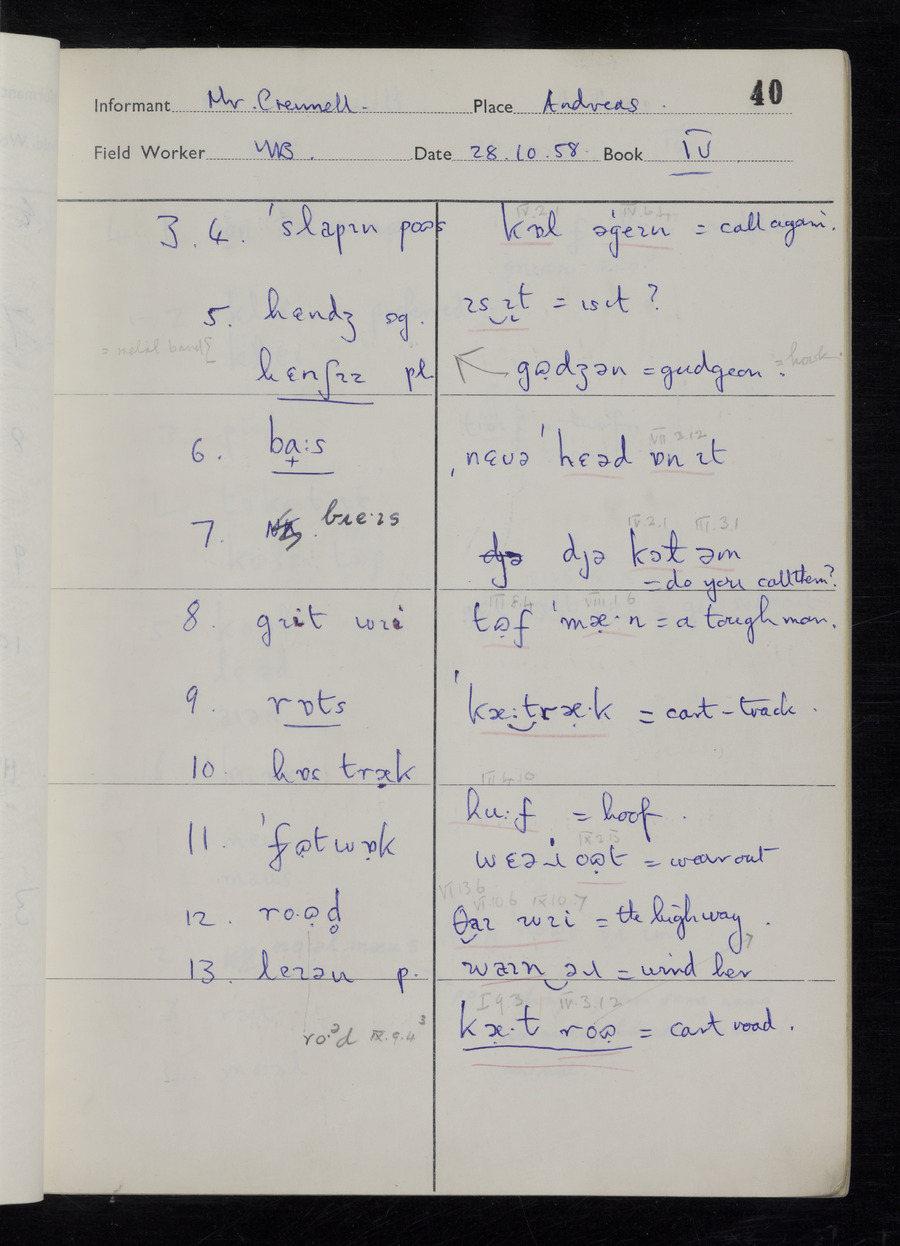 40
Informant Mr. Crennell. Place Andreas.
Field Worker WB. Date 28.10.58. Book IV
3.4. ˈslapɪn poəs
5. hɛndʒ sg.
= metal band
hɛnʃɪz pl.
6. ba̟:s
7. bɪe·ɪs
8. gɹɪt wɪi
9. rɒts
10. hɒs træ̣k
11. ˈfọtwɒ̣k
12. ro·ọd̥
13. leɪən p.
ro·ᵊd IX.9.4³
IV.2.1
kɒl əgeɪn = call again.
ɪs‿ɪt = is it?
gọdʒən = gudgeon. = hook.
VII 2.12
ˌnɛvə ˈhɛəd ɒn ɪt
IV 2.1 III.3.1
djə kɔt əm
= do you call them?
III 8.4 VIII.1.6
tọf ˈmæ̣·n = a tough man.
ˈkæ:‿træ̣·k = cart-track.
III 4.10
hu:f = hoof.
IX.2.15
wɛə·ɹ oọt = wear out
VI 13.6
VI 10.6 IX.10.7
θaɪ wɪi = the highway.
waɪn‿əɹ = wind her ?
I 9.3 IV.3.12
kæ̣·t roọ = cart road.